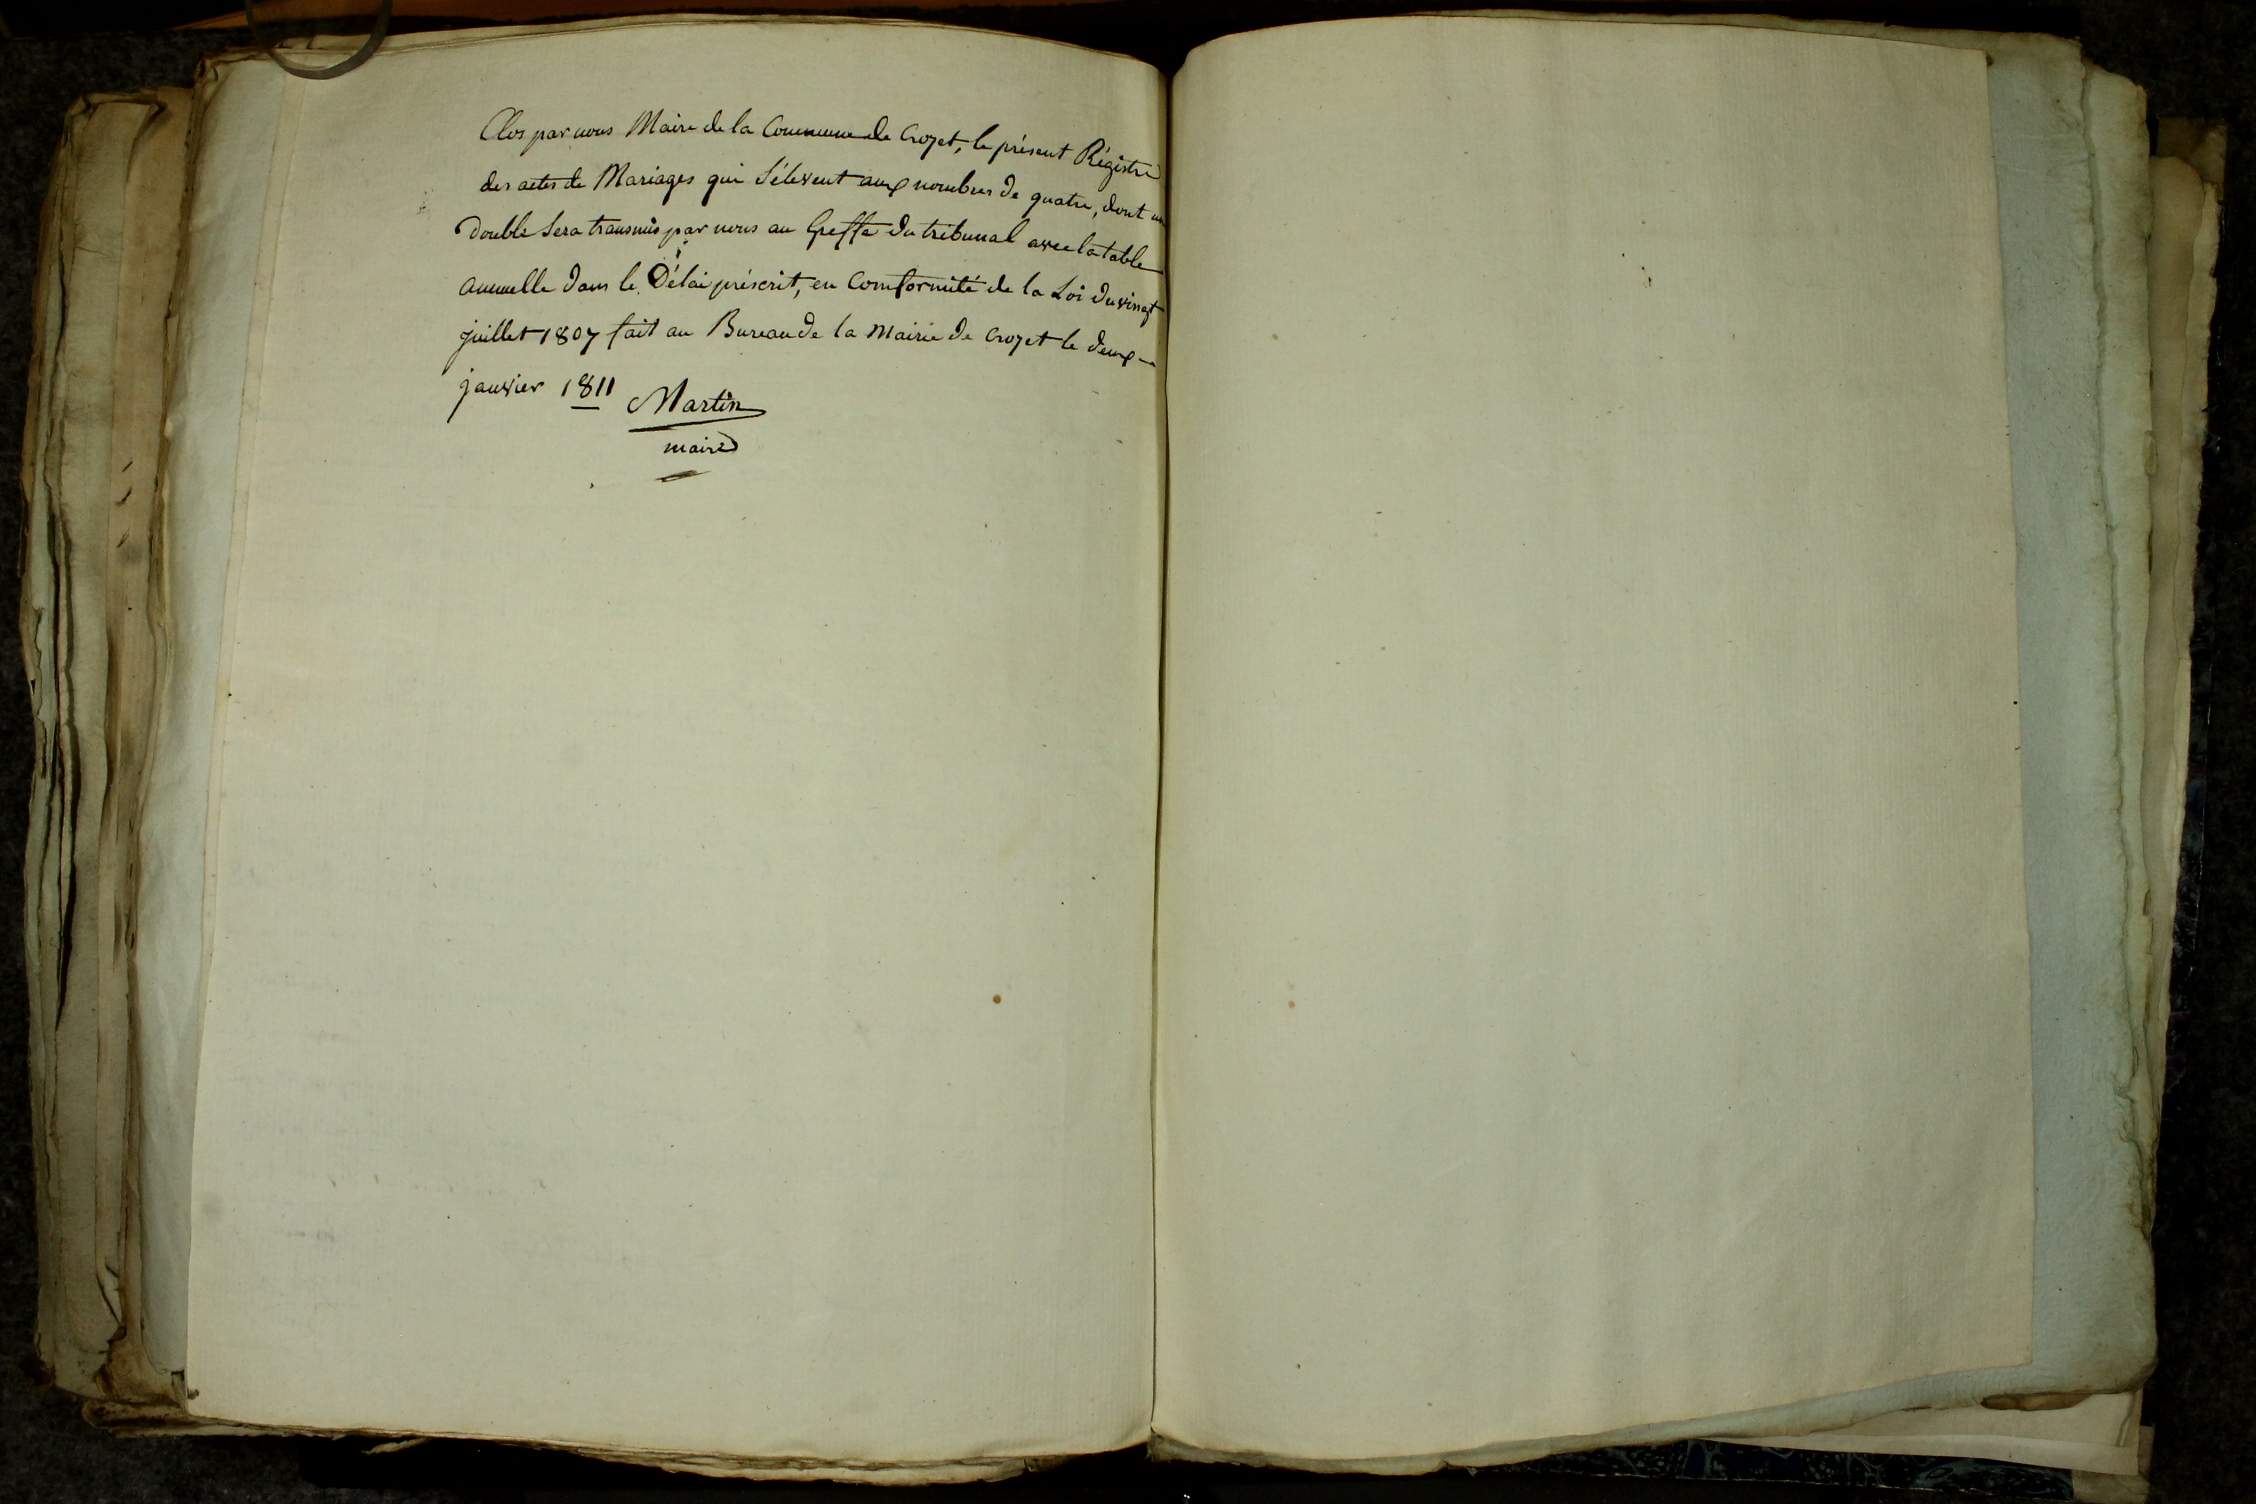 Clos par nous Maire de la Commune de Crozet, le présent Régistre
des actes de Mariages qui S'élevent aux nombres de quatre, dont un
Double Sera transmis par nous au Greffe du tribunal avec la table
annuelle dans le Délai préscrit, en Comformité de la Loi du vingt
juillet 1807 fait au Bureau de la Mairie de Crozet le deux
janvier 1811
Martin
maire